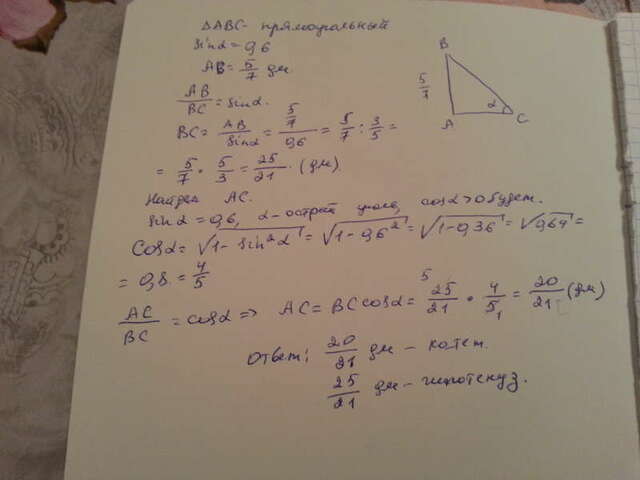 ΔABC - прямоугольный
sinα = 0,6
AB = 5/7 дм
AB/BC = sinα.
BC = AB/sinα = 5/7/0,6 = 5/7 : 3/5 =
= 5/7 · 5/3 = 25/21 · (дм)
Найдем AC.
sinα = 0,6, α - острый угол, cosα > 0 будет.
Cosα = √1 - sin²α = √1 - 0,6² = √1 - 0,36 = √0,64 =
= 0,8 = 4/5
AC/BC = cosα => AC = BC cosα = 25/21 · 4/5 = 20/21 (дм)
5
1
Ответ: 20/21 дм - катет.
25/21 дм - гипотенуз.
B
5/7
α
A
C